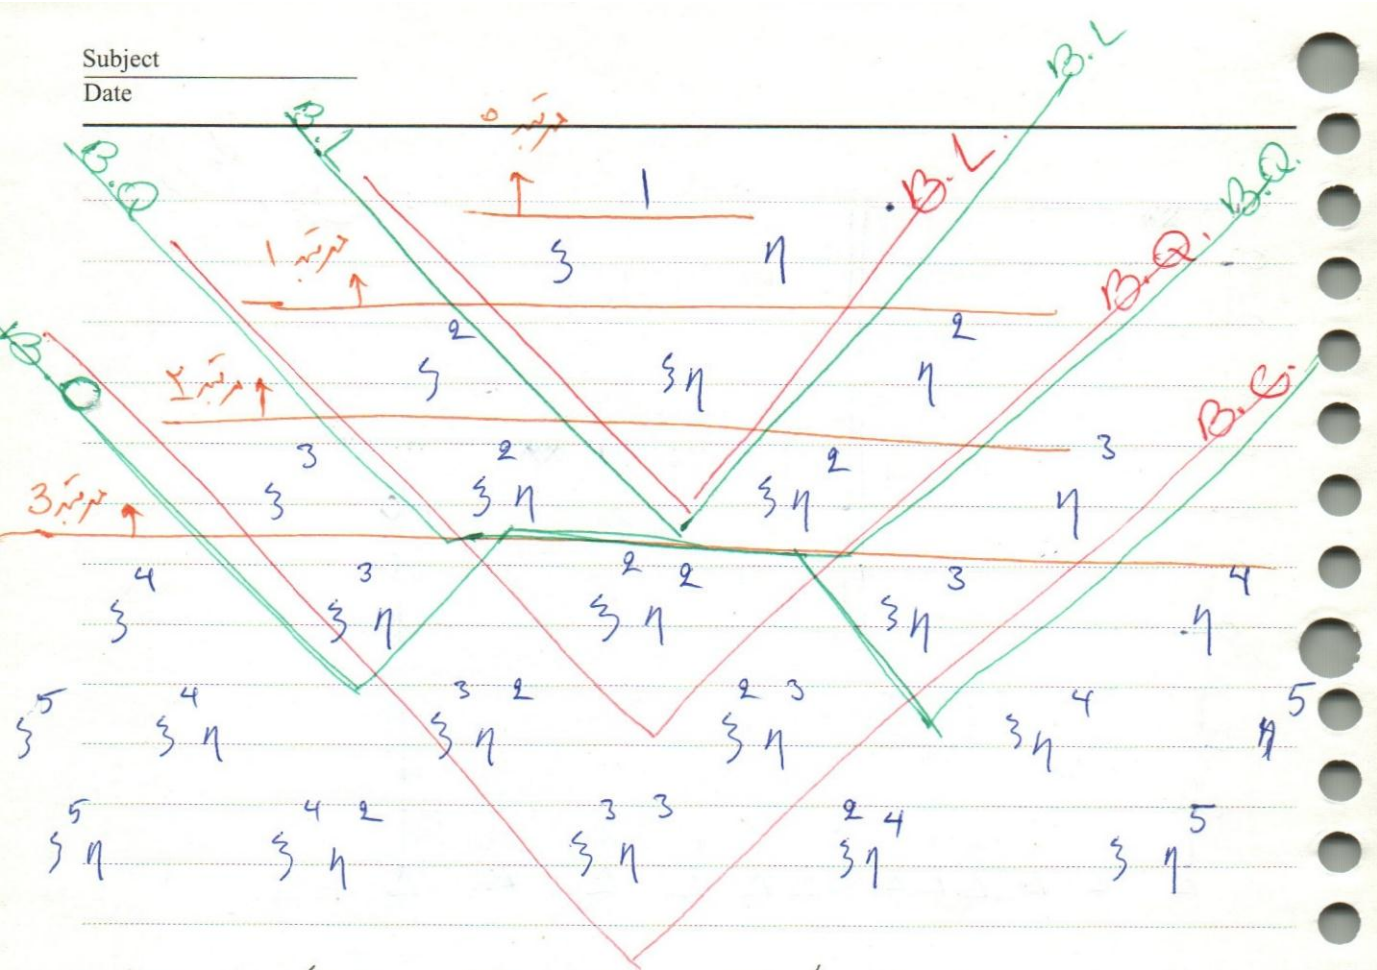 Subject
Date
B.L
مرتبه ۰
B.L
B.L.
B.Q
B.Q.
1
B.Q.
مرتبه ۱
ξ η
B.
ξ² ξη η²
مرتبه ۲
B.C.
ξ³ ξ²η ξη² η³
مرتبه 3
ξ⁴ ξ³η ξ²η² ξη³ η⁴
ξ⁵ ξ⁴η ξ³η² ξ²η³ ξη⁴ η⁵
ξ⁵η ξ⁴η² ξ³η³ ξ²η⁴ ξη⁵